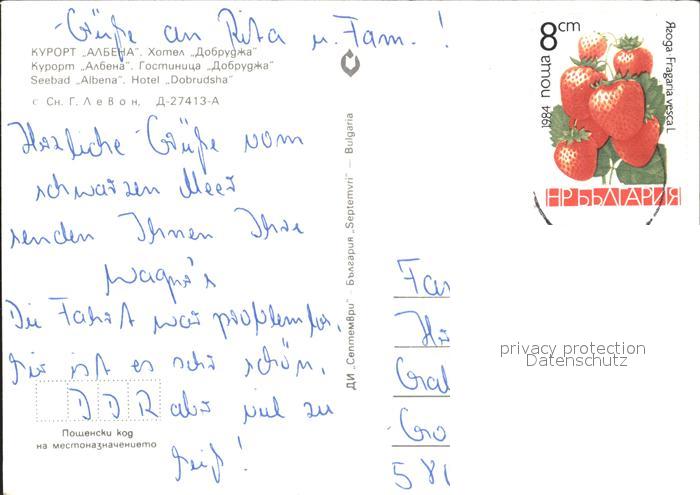 Grüße an Rita u. Fam. !
КУРОРТ „АЛБЕНА". Хотел „Добруджа"
Курорт „Албена". Гостиница „Добруджа"
Seebad „Albena". Hotel „Dobrudsha"
с Сн. Г. Левон, Д-27413-А
Herzliche Grüße vom
schwarzen Meer
senden Ihnen Ihre
Wagner's
Die Fahrt war problemlos,
hier ist es sehr schön,
DDR aber viel zu
heiß!
Пощенски код
на местоназначението
ДИ „Септември" — България „Septemvri" — Bulgaria
8 cm
поща
1984
Ягода-Fragaria vesca L.
НР БЪЛГАРИЯ
Fam
He
Gra
Gro
581
privacy protection
Datenschutz